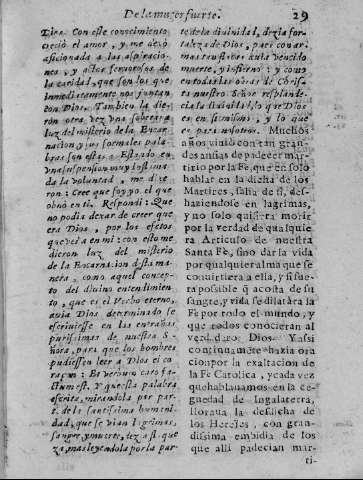 De la muger fuerte. 29
Dios. Con este conocimiento
creció el amor, y me dexó
aficionada a las aspiracio-
nes, y actos fervorosos de
la caridad, que son los que
inmediatamente nos juntan
con Dios. Tambien la die-
ron otra vez una soberana
luz del misterio de la Encar-
nacion, y sus formales pala-
bras son estas. Estando en
una suspension muy intima
de la voluntad, me dixe-
ron: Cree que soy yo el que
obro en ti. Respondi: Que
no podia dexar de creer que
era Dios, por los efectos
que veia en mi: con esto me
dieron luz del misterio
de la Encarnacion desta ma-
nera, como aquel concep-
to del divino entendimien-
to, que es el Verbo eterno,
avia Dios determinado se
escriviesse en las entrañas
purissimas de nuestra Se-
ñora, para que los hombres
pudiessen leer a Dios el co-
raçon: Et verbum caro fa-
ctum est. Y que esta palabra
escrita, mirandola por par-
te de la santissima humani-
dad, que se vian lagrimas,
sangre, y muerte, tez a si que
za, mas leyendola por la par-
te de la divinidad, dezia for-
taleza de Dios, pues con ar-
mas tan flacas avia vencido
muerte, y infierno: y como
en todas las obras de Chris-
to nuestro Señor resplande-
cia la divinidad, lo que Dios
es en si mismo, y lo que
es para nosotros. Muchos
años vivió con tan gran-
des ansias de padecer mar-
tirio por la Fè, que en solo
hablar en la dicha de los
Martires, salia de sì, des-
haziendose en lagrimas,
y no solo quisiera morir
por la verdad de qualquie
ra Articulo de nuestra
Santa Fè, sino dar la vida
por qualquier alma que se
convirtiera a ella, y si fue-
ra possible q̃ a costa de su
sangre, y vida se dilatàra la
Fè por todo el mundo, y
que todos conocieran al
verdadero Dios. Y assi
continuamente hazia ora
cion por la exaltacion de
la Fè Catolica, y cada vez
que hablavamos en la ce-
guedad de Ingalaterra,
llorava la desdicha de
los Hereges, con gran-
dissima embidia de los
que alli padecian mar-
ti-